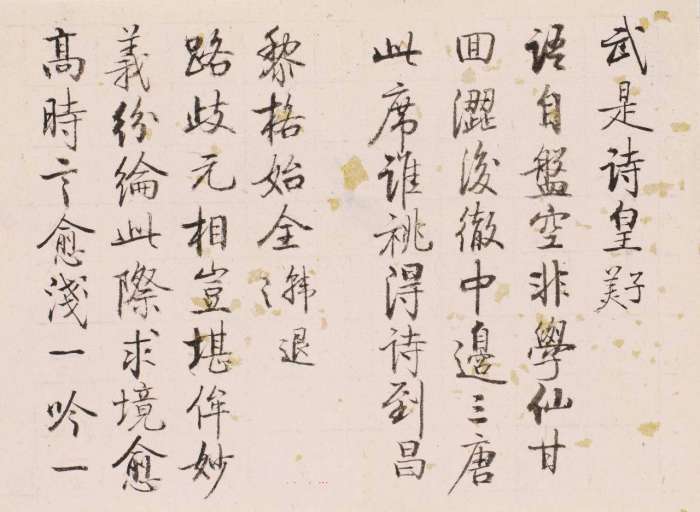 武是詩皇子美
語自盤空非學仙甘
回澀後徹中邊三唐
此席誰祧得詩到昌
黎格始全韓退之
路歧元相豈堪侔妙
義紛綸此際求境愈
高時言愈淺一吟一